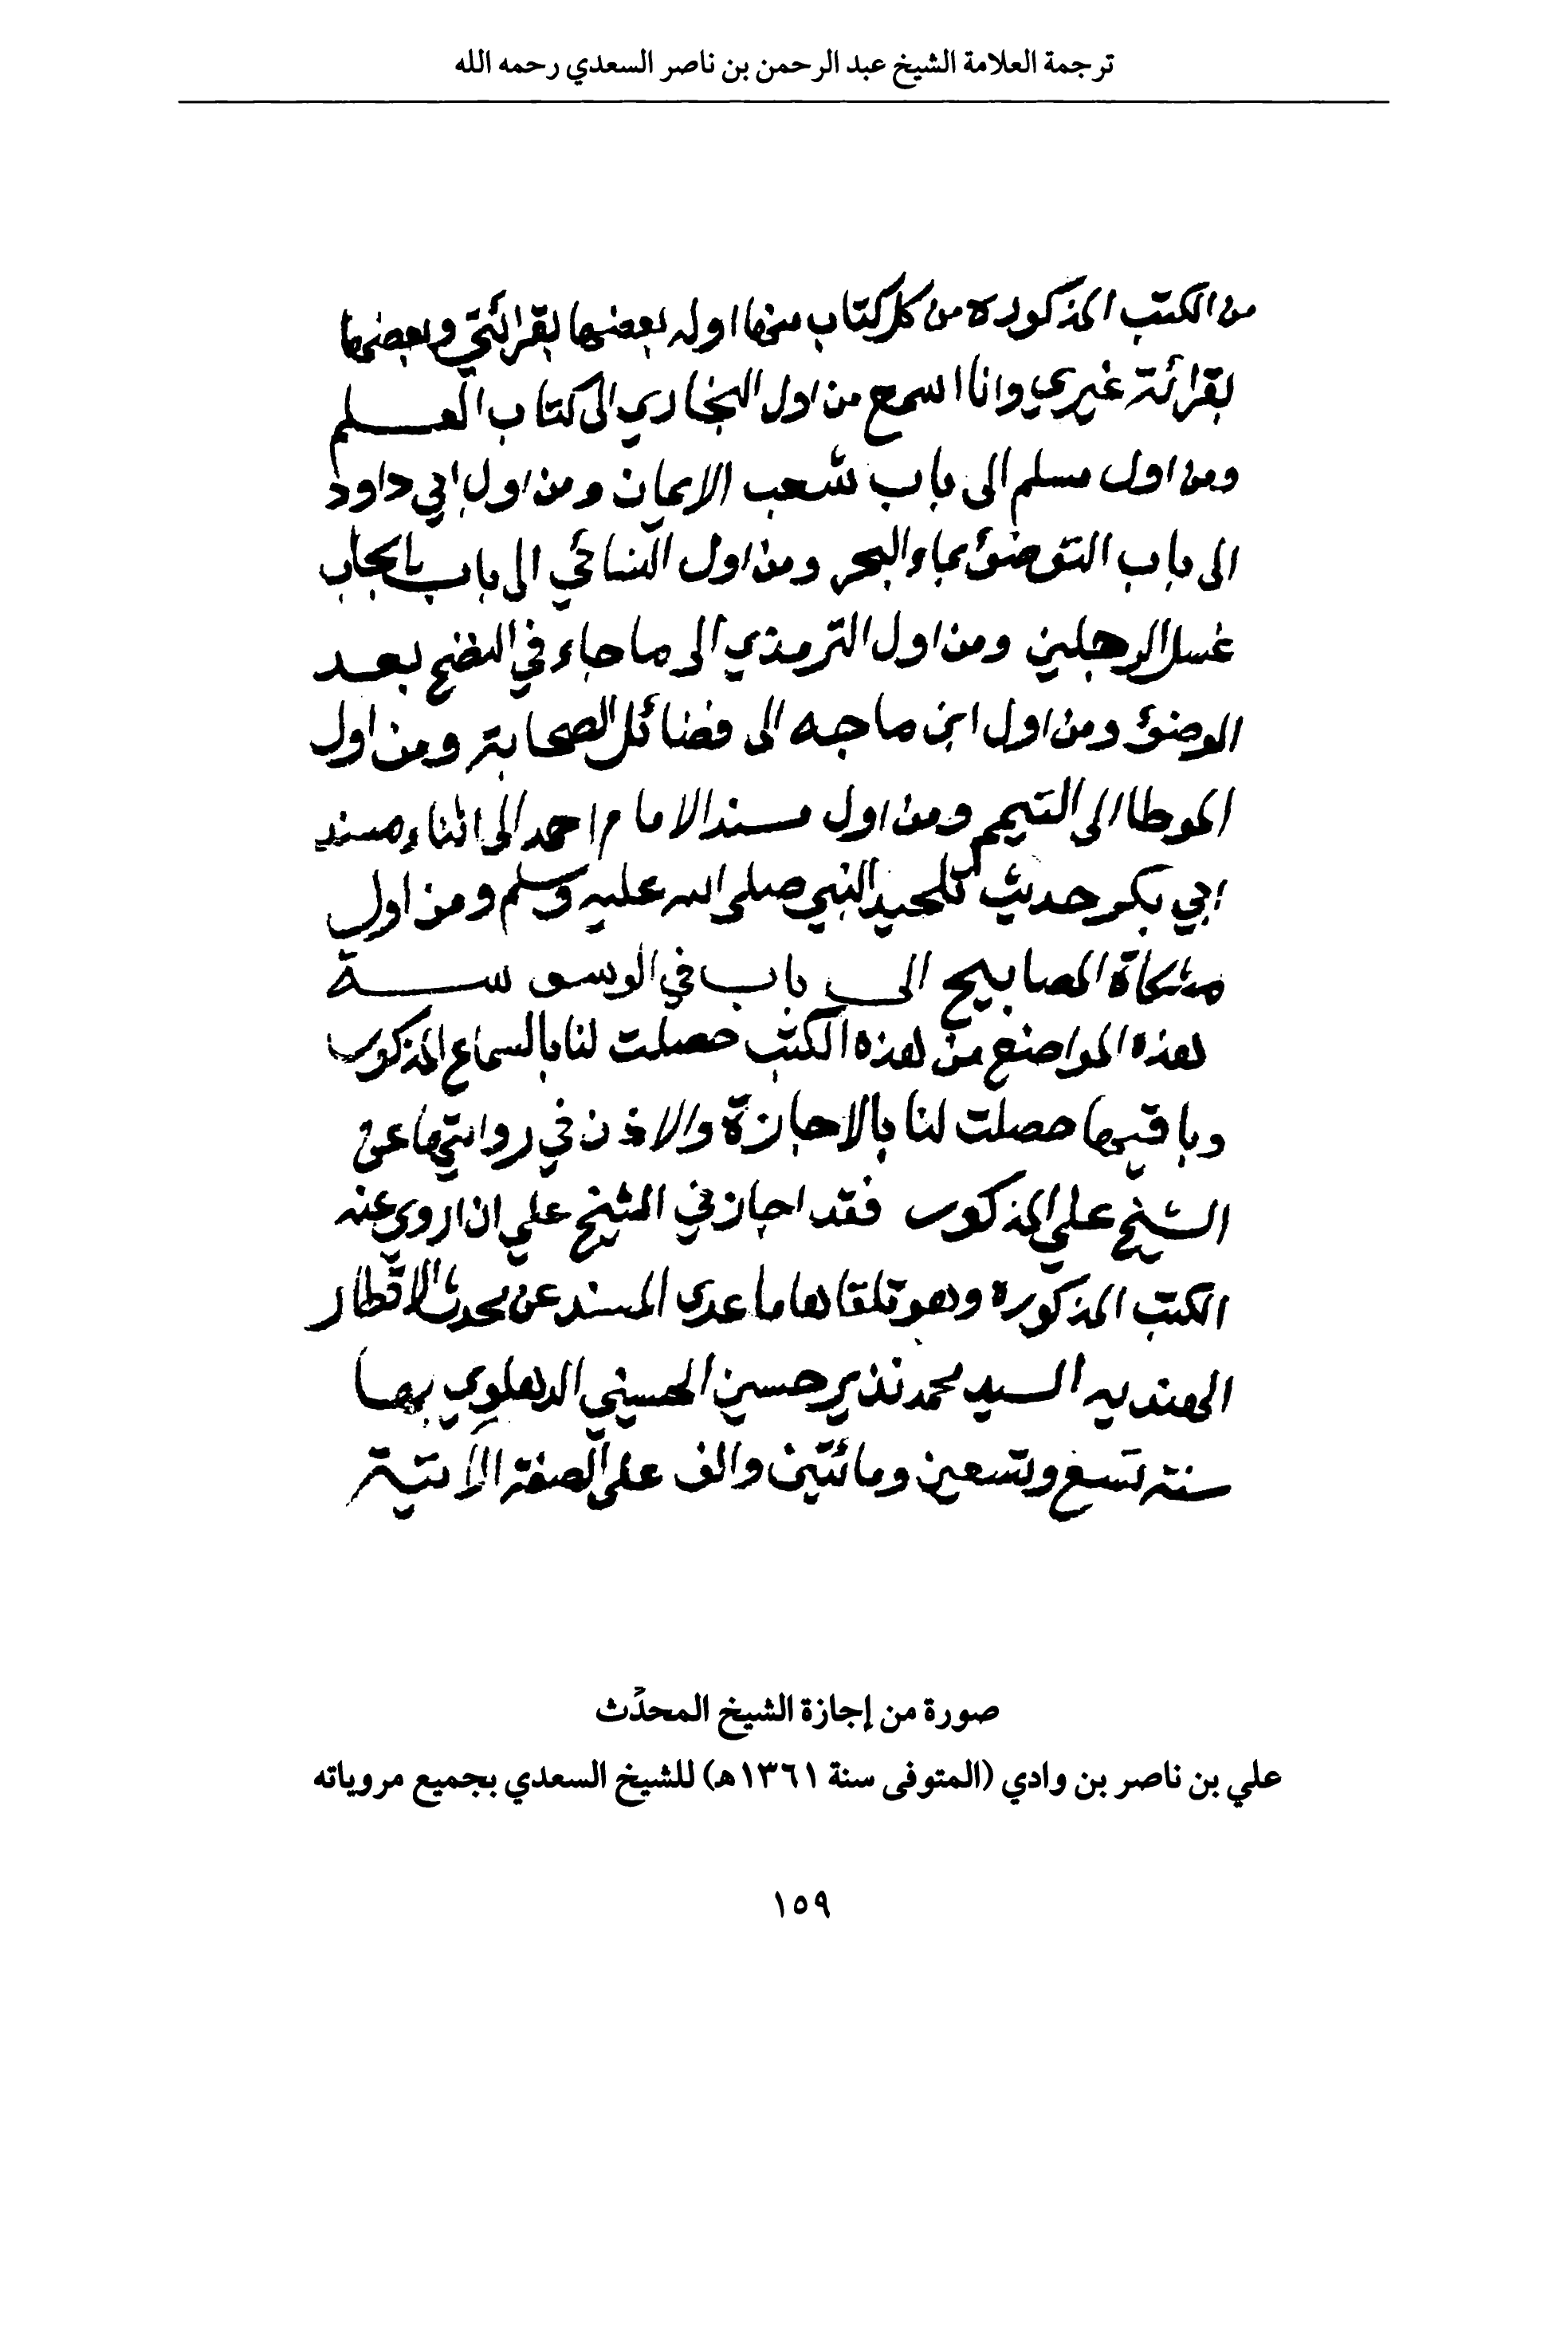 ترجمة العلامة الشيخ عبد الرحمن بن ناصر السعدي رحمه الله
من الكتب المذكورة من كل كتاب منها اوله بعضها بقرائتي وبعضها
بقرائة غيري وانا اسمع من اول البخاري الى كتاب العلم
ومن اول مسلم الى باب شعب الايمان ومن اول ابي داود
الى باب التوضئ بماء البحر ومن اول النسائي الى باب بايجاب
غسل الرجلين ومن اول الترمذي الى ما جاء في النضح بعد
الوضوء ومن اول ابن ماجه الى فضائل الصحابة ومن اول
الموطا الى التيمم ومن اول مسند الامام احمد الى اثناء مسند
ابي بكر حديث النبي صلى الله عليه وسلم ومن اول
مشكاة المصابيح الى باب في الوسوسة
هذه المواضع من هذه الكتب حصلت لنا بالسماع المذكور
وباقيها حصلت لنا بالاجازة والاذن في روايتها عن
الشيخ علي المذكور فقد اجازني الشيخ علي ان اروي عنه
الكتب المذكورة وهو تلقاها ما عدى المسند عن محدث الاقطار
الهنديه السيد محمد نذير حسين الحسيني الدهلوي بها
سنة تسع وتسعين ومائتين والف على الصفة الاتية
صورة من إجازة الشيخ المحدّث
علي بن ناصر بن وادي (المتوفى سنة ١٣٦١هـ) للشيخ السعدي بجميع مروياته
١٥٩